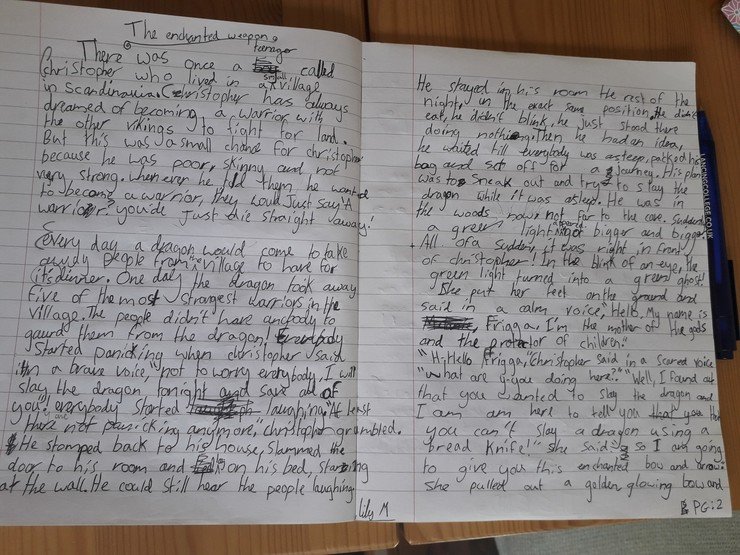 The enchanted weapon.
teenager
There was once a called
Christopher who lived in a small village
in Scandinavia. Christopher has always
dreamed of becoming a warrior with
the other vikings to fight for land.
But this was a small chane for christopher
because he was poor, skinny and not
very strong. When ever he told them, he wanted
to become a warrior, they woud Just say "A
warrior? youde Just die straight away!"
Every day a dragon would come to take
away people from village to have for
it's dinner. One day the dragon took away
five of the most strongest warriors in the
village. The people didn't have anybody to
gaurd them from the dragon! Everybody
started panicking when christopher said
in a brave voice, "not to worry everybody, I will
slay the dragon tonight and save all of
you", everybody started laughing, "At least
not panicking anymore," Christopher grambled.
He stomped back to his house, slammed the
door to his room and on his bed, staring
at the wall. He could still hear the people laughing
Lily M
He stayed in his room the rest of the
night, in the exact same position. He didn't
eat, he didn't blink, he just stood there
doing nothing. Then he had an idea,
he waited till everybody was asleep, packed his
bag and set off for a Journey. His plan
was to sneak out and try to slay the
dragon while it was asleep. He was in
the woods now, not far to the cave. Suddenly
a green light bigger and bigger
All of a sudden, it was right in front
of christopher! In the blink of an eye, the
green light turned into a green ghost!
She put her feet on the ground and
said in a calm voice, "Hello, My name is
Frigga. I'm the mother of the gods
and the protector of children."
"Hi, Hello Frigga," Christopher said in a scared voice
"what are y-you doing here?" "Well, I found out
that you wanted to slay the dragon and
I am am here to tell you that
you can't slay a dragon using a
bread knife!" she said, so I am going
to give you this enchanted bow and arrow.
She pulled out a golden, glowing bow and
PG:2
LANCINGCOLLEGE.CO.UK